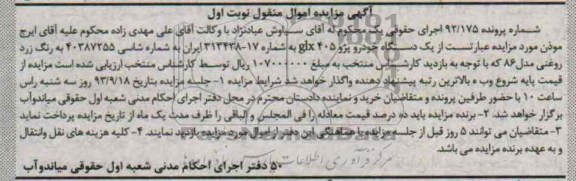 آگهی مزایده اموال منقول نوبت اول
شماره پرونده 92/175 اجرای حقوقی یک محکوم له آقای سیاوش عبادنژاد با وکالت آقای علی مهدی زاده محکوم علیه آقای ایرج
موذن مورد مزایده عبارتست از یک دستگاه خودرو پژو 405 glx به شماره 17-313438 ایران به شماره شاسی 40387255 به رنگ زرد
روغنی مدل 86 که با توجه به بازدید کارشناس منتخب به مبلغ 107000000 ریال توسط کارشناس منتخب ارزیابی شده است مزایده از
قیمت پایه شروع و به بالاترین رتبه پیشنهاد دهنده واگذار خواهد شد شرایط مزایده 1- جلسه مزایده بتاریخ 93/9/18 روز سه شنبه راس
ساعت 10 با حضور طرفین پرونده و متقاضیان خرید و نماینده دادستان محترم در محل دفتر اجرای احکام مدنی شعبه اول حقوقی میاندوآب
برگزار خواهد شد. 2- برنده مزایده باید ده درصد قیمت معادله را فی المجلس و الباقی را ظرف مدت یک ماه از تاریخ مزایده پرداخت نماید
3- متقاضیان می توانند 5 روز قبل از جلسه مزایده با هماهنگی این دفتر از اموال مورد مزایده بازدید نمایند. 4- کلیه هزینه های نقل وانتقال
و به عهده برنده مزایده می باشد.
50 دفتر اجرای احکام مدنی شعبه اول حقوقی میاندوآب